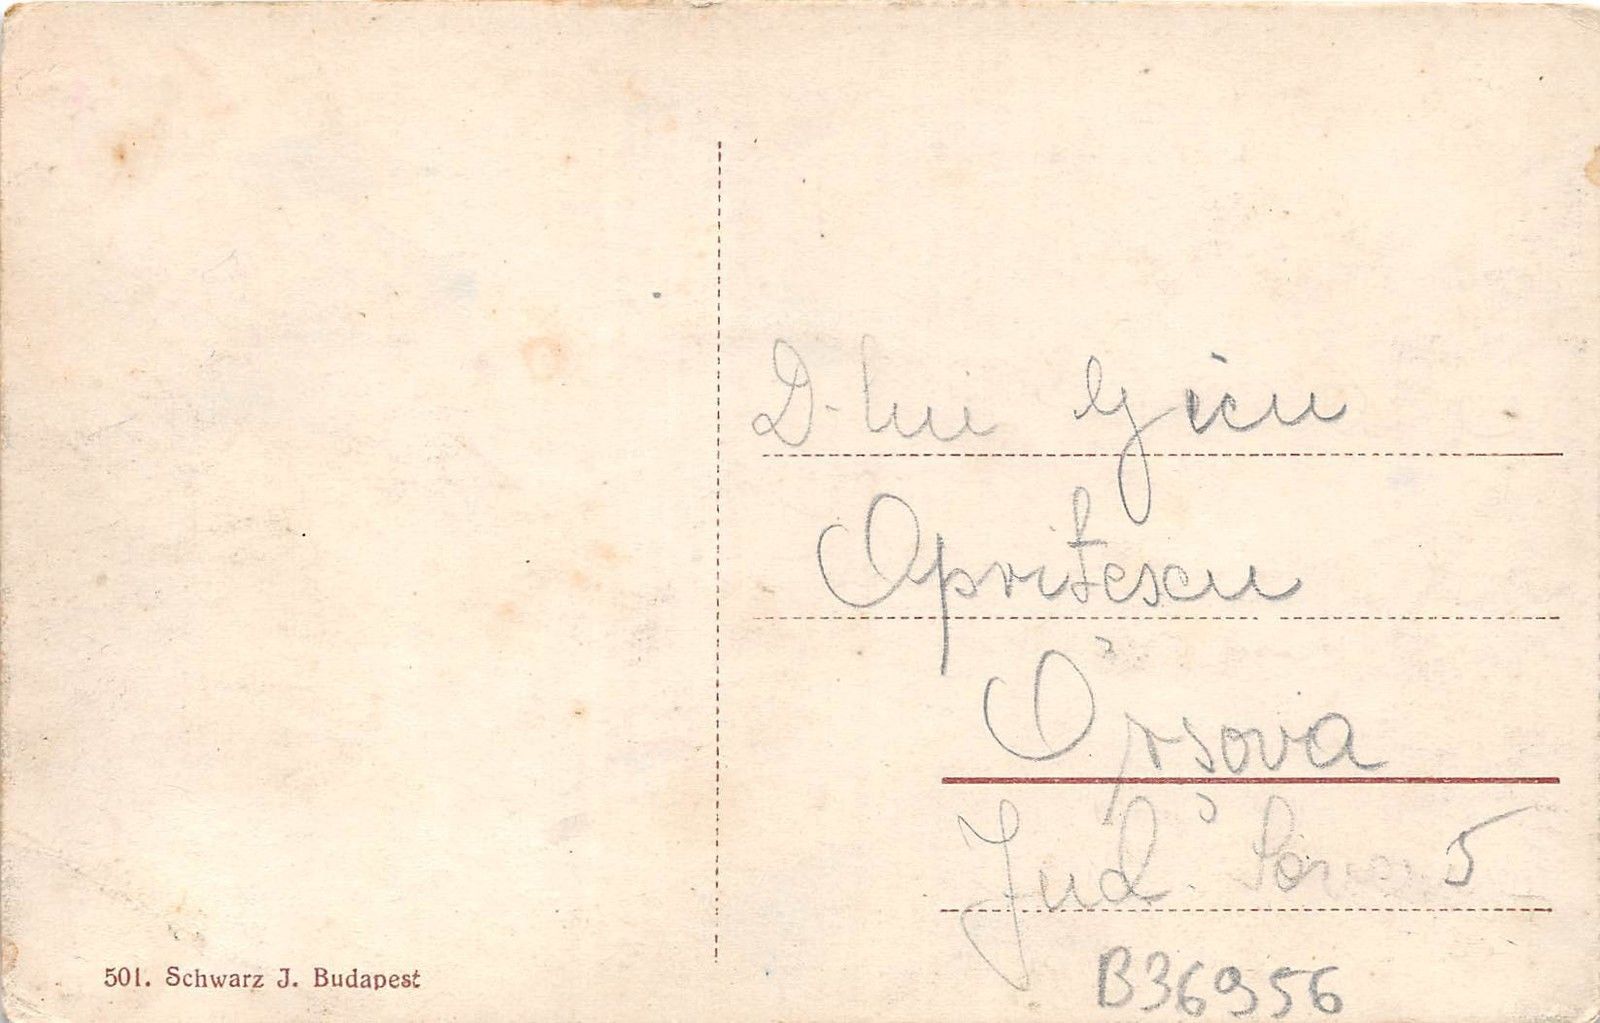 D-lui Gicu
Opritescu
Orsova
Jud. 5
B36956
501. Schwarz J. Budapest